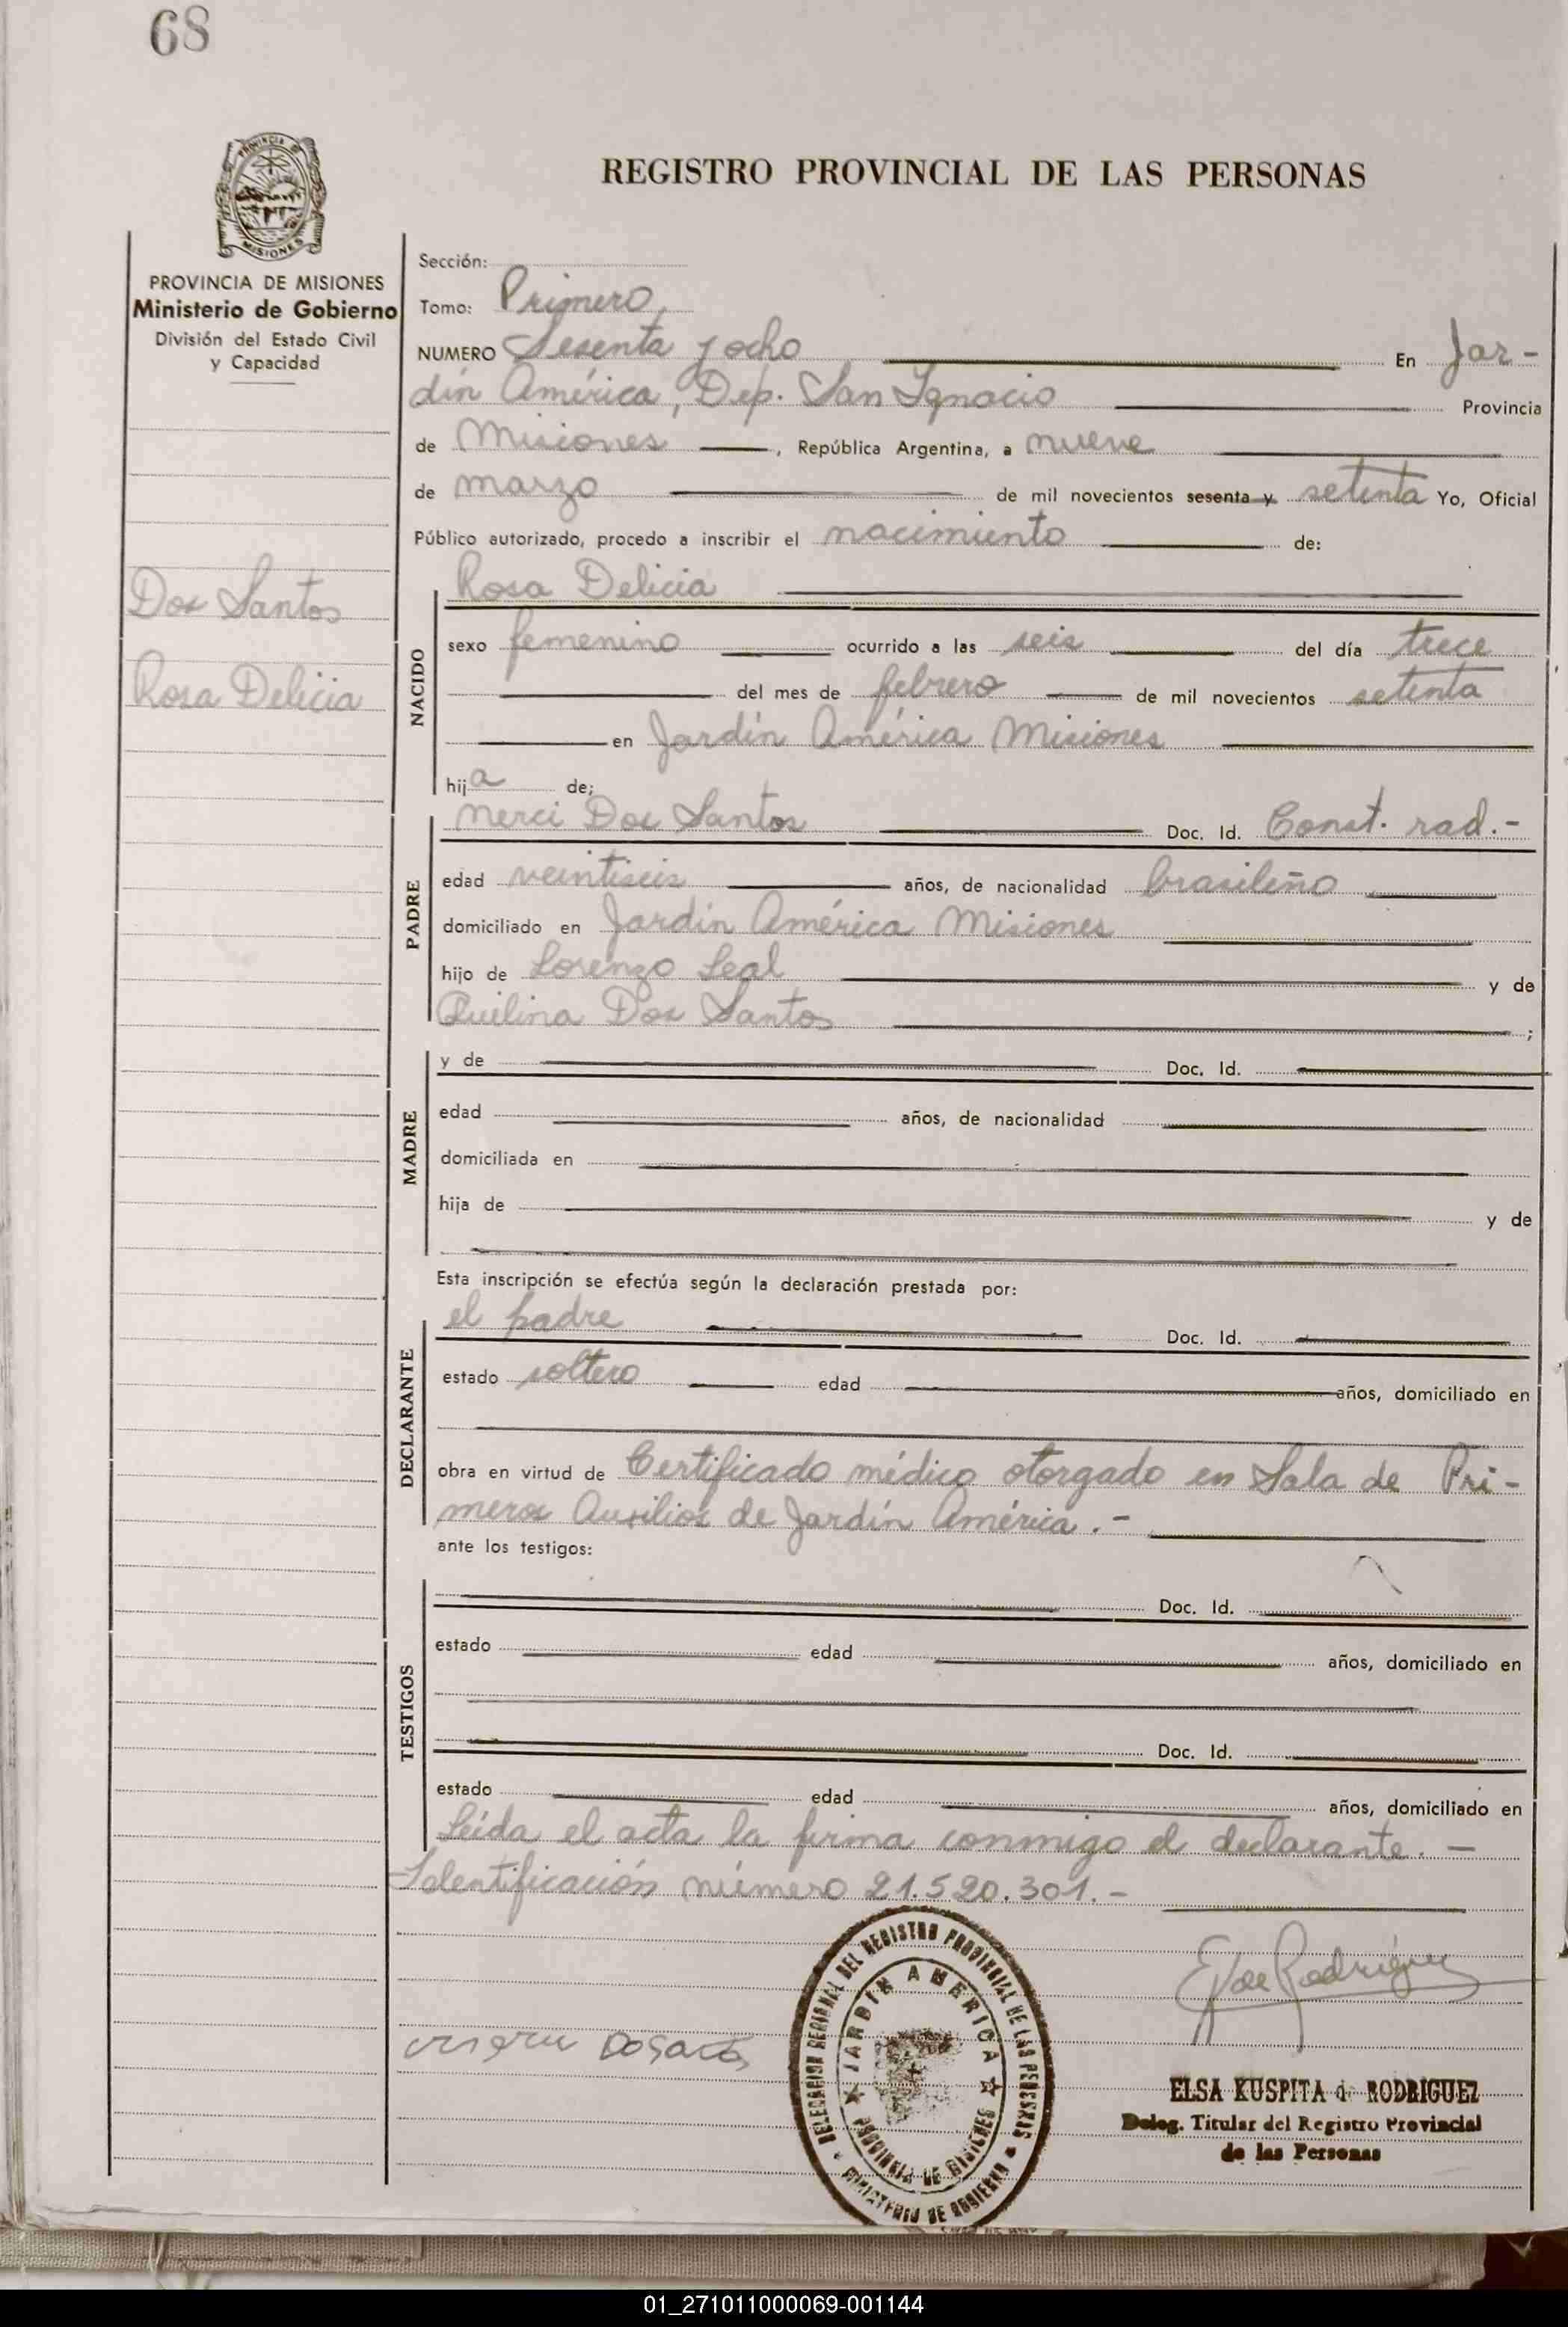 68
PROVINCIA DE
MISIONES
REGISTRO PROVINCIAL DE LAS PERSONAS
PROVINCIA DE MISIONES
Ministerio de Gobierno
División del Estado Civil
y Capacidad
Dos Santos
Rosa Delicia
Sección:
Tomo: Primero
NUMERO Sesenta y ocho En Jar-
dín América, Dep. San Ignacio Provincia
de Misiones, República Argentina, a nueve
de marzo de mil novecientos sesenta y setenta Yo, Oficial
Público autorizado, procedo a inscribir el nacimiento de:
NACIDO
Rosa Delicia
sexo femenino ocurrido a las seis del día trece
del mes de febrero de mil novecientos setenta
en Jardín América Misiones
hija de;
PADRE
Merci Dos Santos Doc. Id. Const. rad.-
edad veintiseis años, de nacionalidad brasileño
domiciliado en Jardín América Misiones
hijo de Lorenzo Leal y de
Quilina Dos Santos ;
MADRE
y de Doc. Id.
edad años, de nacionalidad
domiciliada en
hija de y de
Esta inscripción se efectúa según la declaración prestada por:
DECLARANTE
el padre Doc. Id.
estado soltero edad años, domiciliado en
obra en virtud de Certificado médico otorgado en Sala de Pri-
meros Auxilios de Jardín América.-
ante los testigos:
TESTIGOS
Doc. Id.
estado edad años, domiciliado en
Doc. Id.
estado edad años, domiciliado en
Leída el acta la firma conmigo el declarante. -
Identificación número 21.520.301.-
DELEGACION REGIONAL DEL REGISTRO PROVINCIAL DE LAS PERSONAS
MINISTERIO DE GOBIERNO
JARDIN AMERICA
PROVINCIA DE MISIONES
E K de Rodríguez
ELSA KUSPITA de RODRIGUEZ
Deleg. Titular del Registro Provincial
de las Personas
01_271011000069-001144